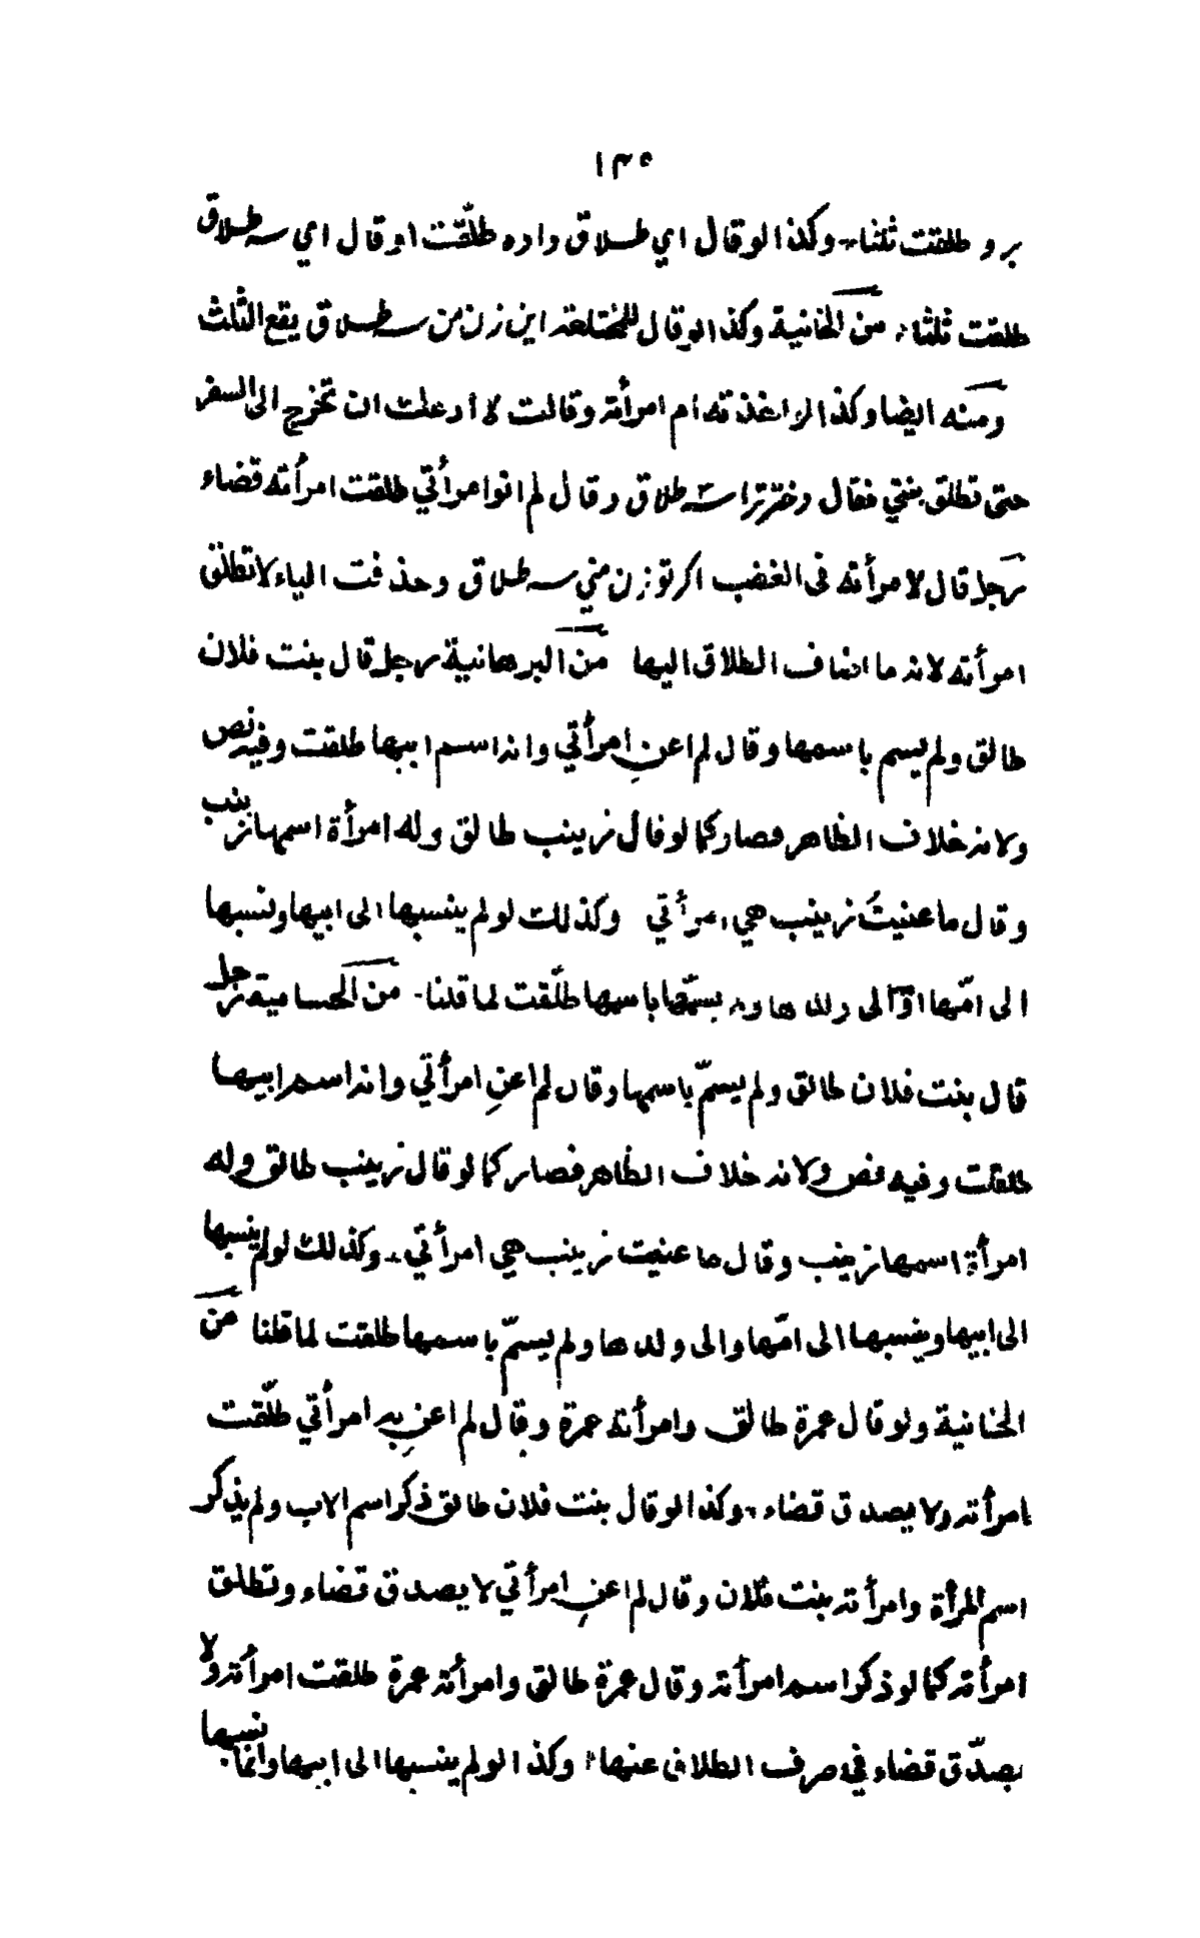 ١٣٥
برو طلقت ثلثا وكذا لو قال اي طلاق داده طلّقت او قال اي سه طلاق
طلقت ثلثا من الخانية وكذا لو قال للمختلعة اين زن من سه طلاق يقع الثلث
ومنه ايضا وكذا اخذته ام امرأته وقالت لا أدعك ان تخرج الى السفر
حتى تطلق بنتي فقال دختر ترا سه طلاق وقال لم انو امرأتي طلقت امرأته قضاء
رجل قال لامرأته فى الغضب اكر تو زن مني سه طلاق وحذفت الياء لا تطلق
امرأته لانه ما اضاف الطلاق اليها من البرهانية رجل قال بنت فلان
طالق ولم يسم باسمها وقال لم اعن امرأتي وانه اسم ابيها طلقت وفيه نص
ولانه خلاف الظاهر فصار كما لو قال زينب طالق وله امرأة اسمها زينب
وقال ما عنيتُ زينب هي امرأتي وكذلك لو لم ينسبها الى ابيها ونسبها
الى امّها او الى ولدها ولم يسمّها باسمها طلّقت لما قلنا من الحسامية رجل
قال بنت فلان طالق ولم يسمّ باسمها وقال لم اعنِ امرأتي وانه اسم ابيها
طلقت وفيه نص ولانه خلاف الظاهر فصار كما لو قال زينب طالق وله
امرأة اسمها زينب وقال ما عنيت زينب هي امرأتي وكذلك لو لم ينسبها
الى ابيها وينسبها الى امّها والى ولدها ولم يسمّ باسمها طلقت لما قلنا من
الخانية ولو قال عمرة طالق وامرأته عمرة وقال لم اعنِ به امرأتي طلّقت
امرأته ولا يصدق قضاء وكذا لو قال بنت فلان طالق ذكر اسم الاب ولم يذكر
اسم المرأة وامرأته بنت فلان وقال لم اعنِ امرأتي لا يصدق قضاء وتطلق
امرأته كما لو ذكر اسم امرأته وقال عمرة طالق وامرأته عمرة طلقت امرأته ولا
يصدّق قضاء في صرف الطلاق عنها وكذا لو لم ينسبها الى ابيها وانما نسبها